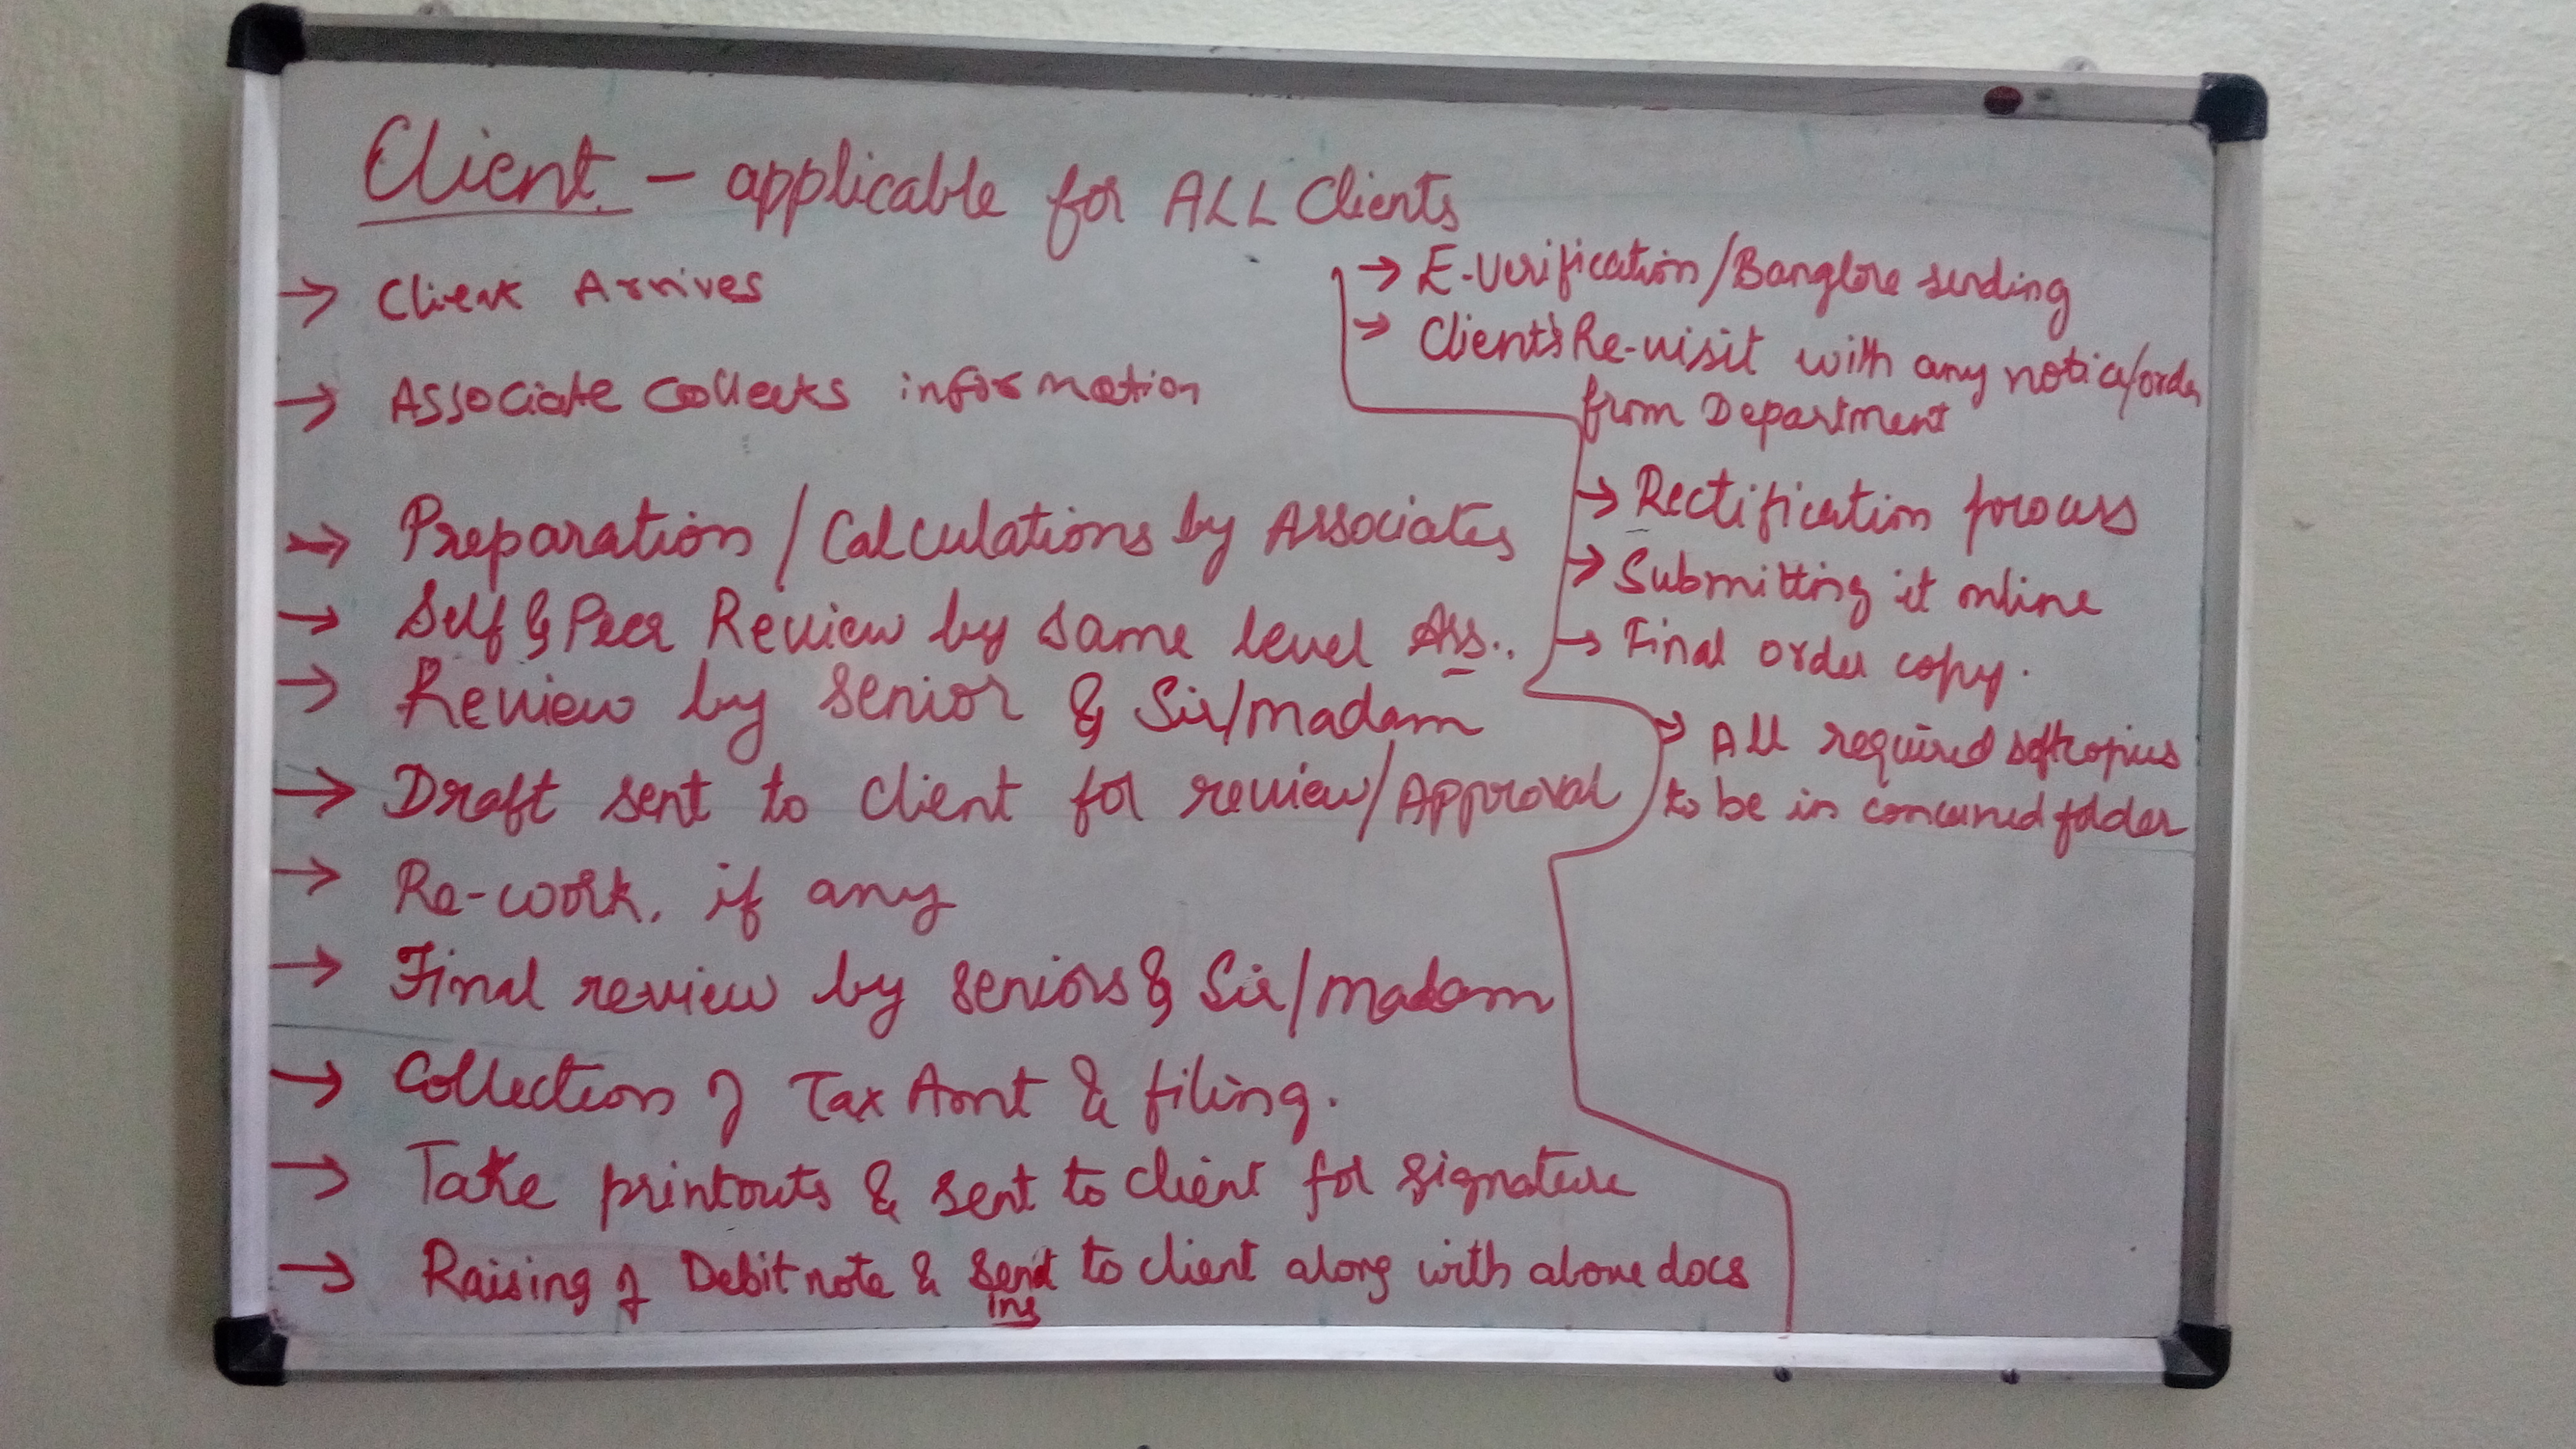 Client - applicable for ALL Clients
→ Client Arrives
→ Associate Collects information
→ Preparation / Calculations by Associates
→ Self & Peer Review by same level Ass..
→ Review by senior & Sir/madam
→ Draft sent to client for review/Approval
→ Re-work, if any
→ Final review by seniors & Sir/madam
→ Collection of Tax Amt & filing.
→ Take printouts & sent to client for signature
→ Raising of Debit note & Send to client along with above docs
ing
→ E-Verification/Banglore sending
→ Client's Re-visit with any notice/order
from Department
→ Rectification process
→ Submitting it online
→ Final order copy.
→ All required softcopies
to be in concerned folder